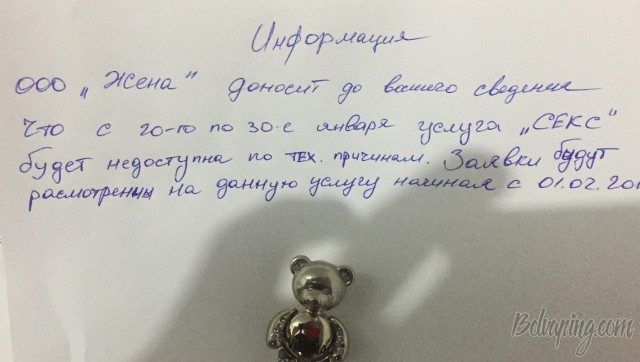 Информация
ООО „Жена" доносит до вашего сведения
что с 20-го по 30-е января услуга „СЕКС"
будет недоступна по тех. причинам. Заявки будут
расмотренны на данную услугу начиная с 01.02.20
Bclraping.com